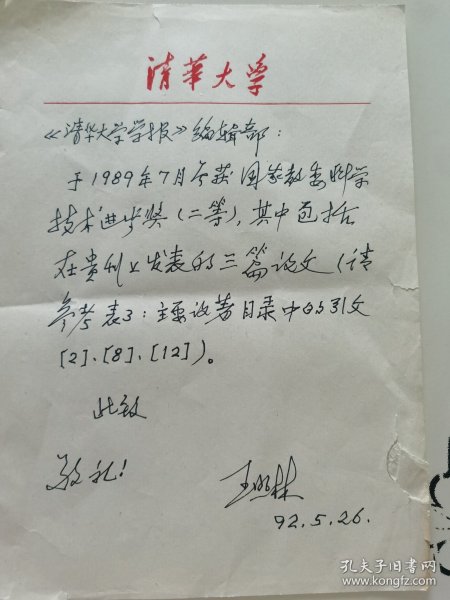 清华大学
《清华大学学报》编辑部：
于1989年7月今获国家教委科学
技术进步奖（二等），其中包括
在贵刊上发表的三篇论文（请
参考表3：主要论著目录中的引文
[2]、[8]、[12]）。
此致
敬礼！
王照林
92.5.26.
孔夫子旧书网
www.kongfz.com